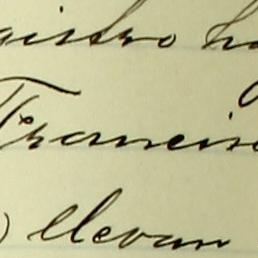 gistro ha
Francisc
llevan